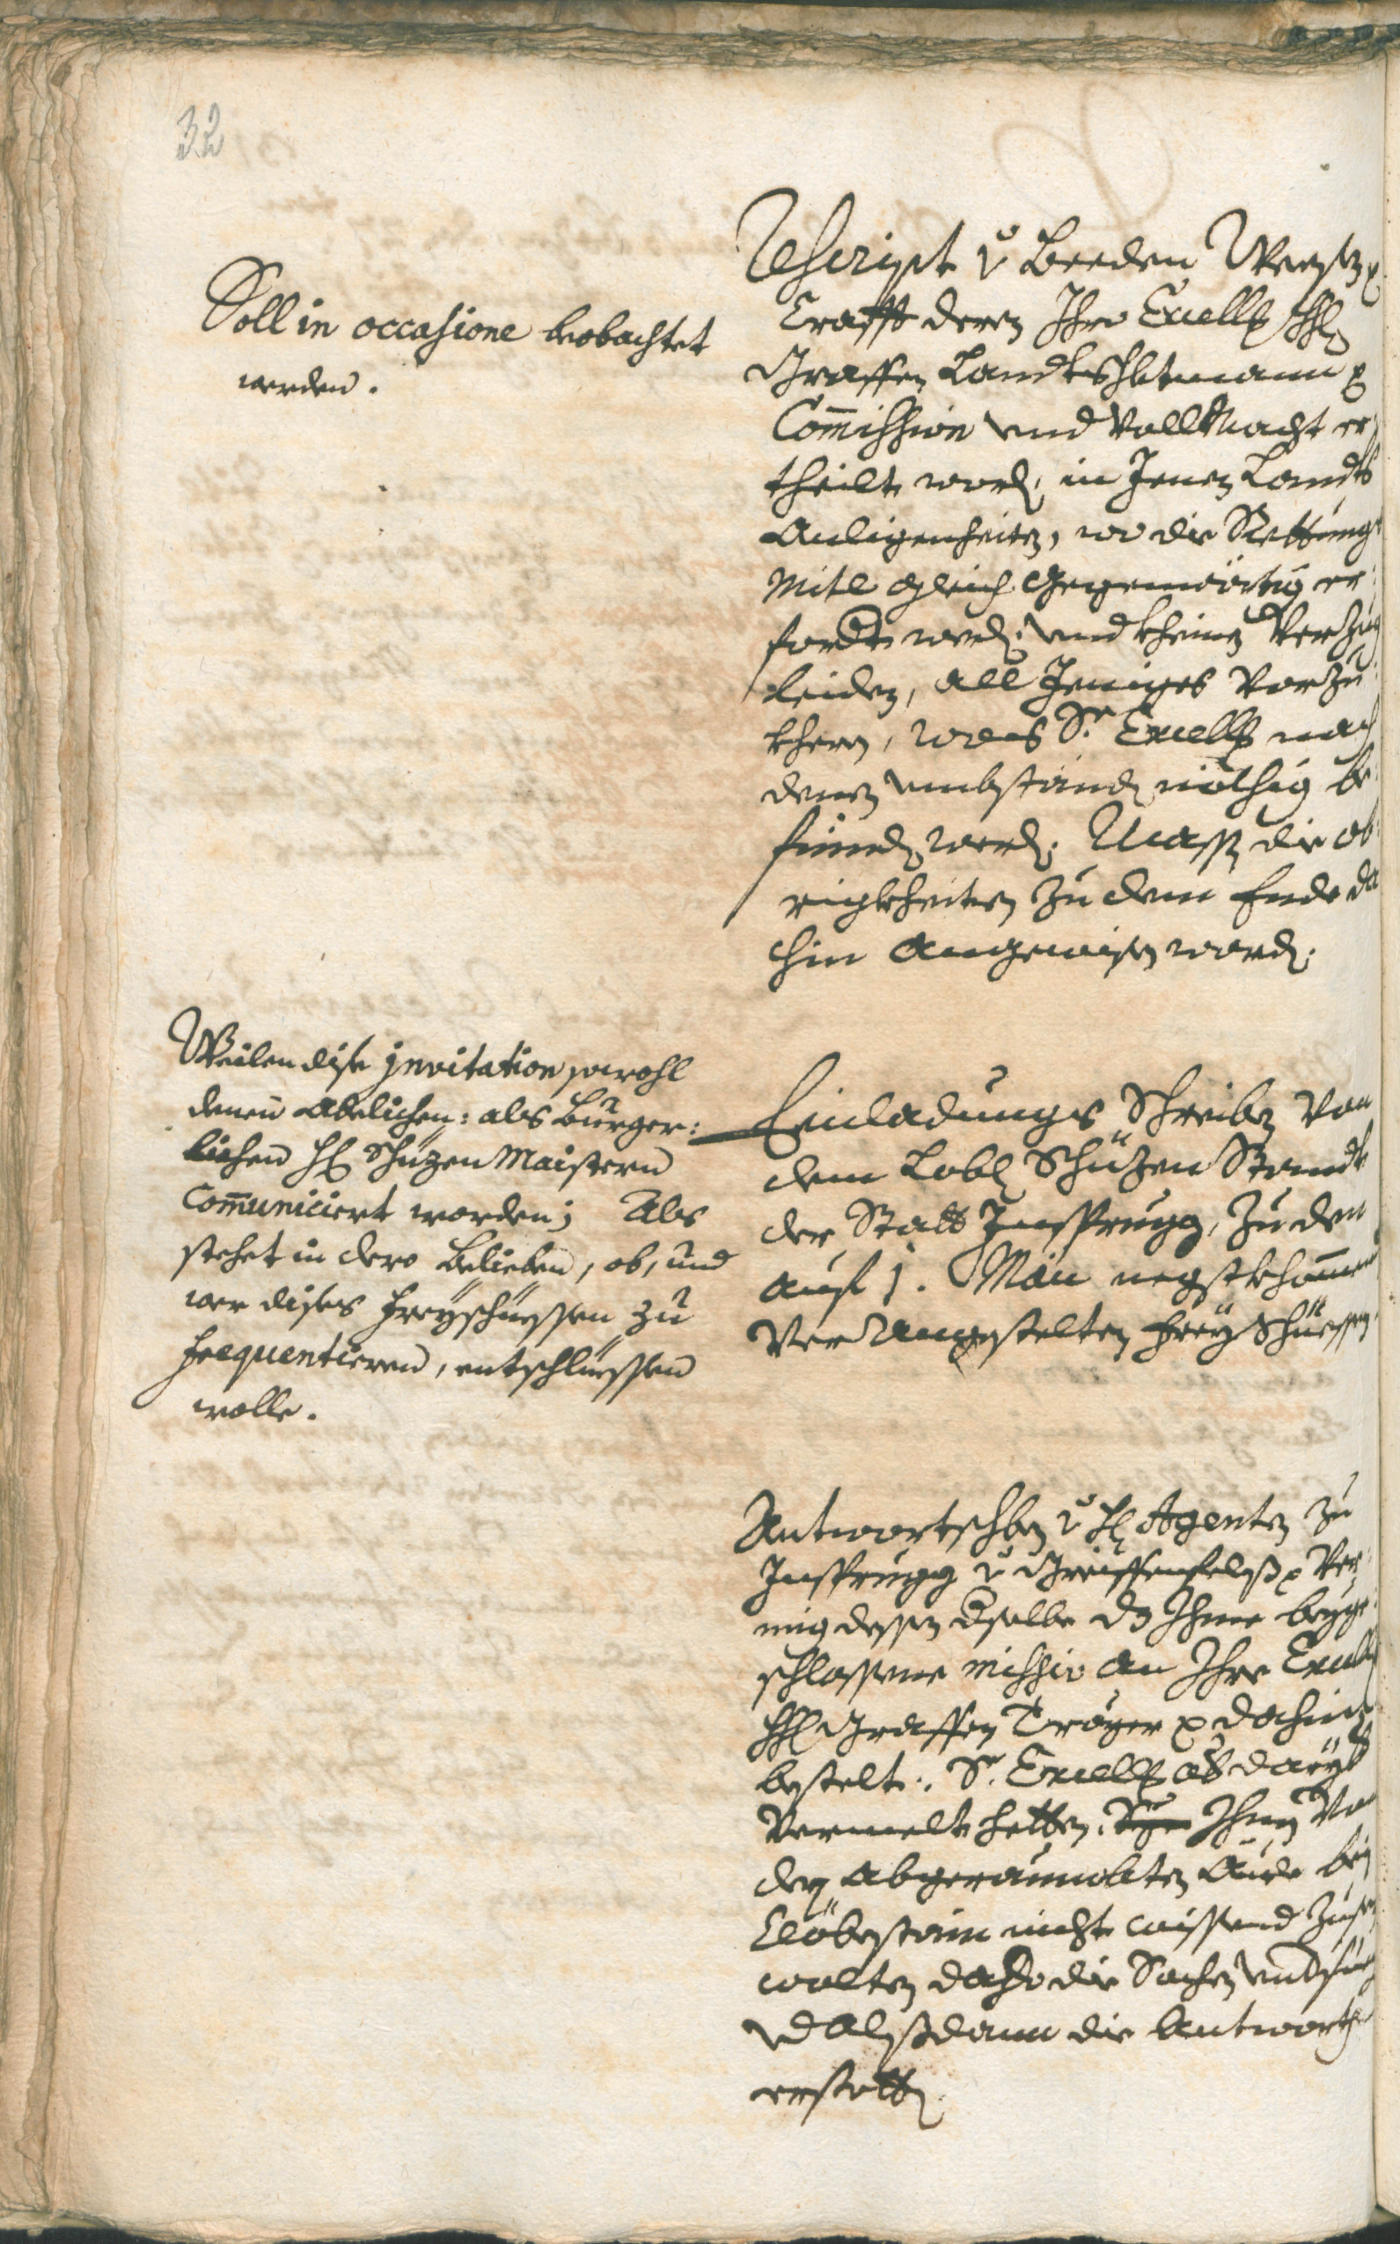 32
Soll in occasione beobachtet
werden.
Rescript v Beeden Weesen
Crafft deren Ihro Excell
Graffen Landtshbtmann
Commission und Vollmacht er
theilt word, in Jenen Landts
Anligenheiten, wo die Rettungs
Mitl gleich Gegenwörtig er
fordt werd, und kheinen Verzug
leiden, all Jeniges Vorzu
kheren, was Sr. Excell nach
denen umbständ nöthig be
find werd; Massen die ob
rigkheiten zu dem Ende da
hin Angewisen word.
Weilen dise invitation sowohl
denen Adelichen: als Burger:
lichen H Schüzen Maistern
Communiciert worden; Als
stehet in dero Belieben, ob, und
wer dises Freyschüessen zu
frequentieren, entschlüessen
wolle.
Einladungs Schreiben Von
dem Lobl Schüzen Standt
der Statt Insprugg, zu den
auf 1. Mäii negstkhommend
Ver Angestelten Frey Schüessen
Antwortschben v H Agenten zu
Insprugg v Greiffenfelß Ver
mig dessen dselbe dz Ihme beyge
schlossene missiv an Ihre Excell
Graffen Tröyer dahin
bestelt. Sr. Excell ab
Vermelt hetten, Ihnen Von
der abgeraumbten Aude bey
nicht wissend zusein
wolten daho die Sachen
vnd Alßdann die Antworth
erstatt